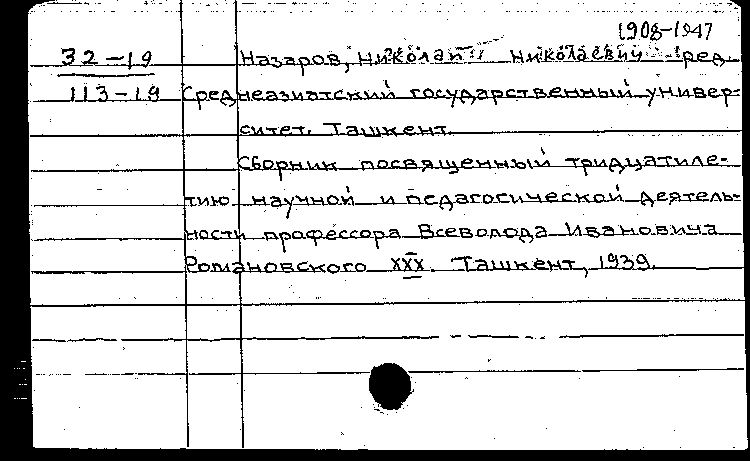 1908-1947
32-19 Назаров, Николай Николаевич ред.
113-19 Среднеазиатский государственный универ-
ситет. Ташкент.
Сборник посвященный тридцатиле-
тию научной и педагогической деятель-
ности профессора Всеволода Ивановича
Романовского XXX. Ташкент, 1939.